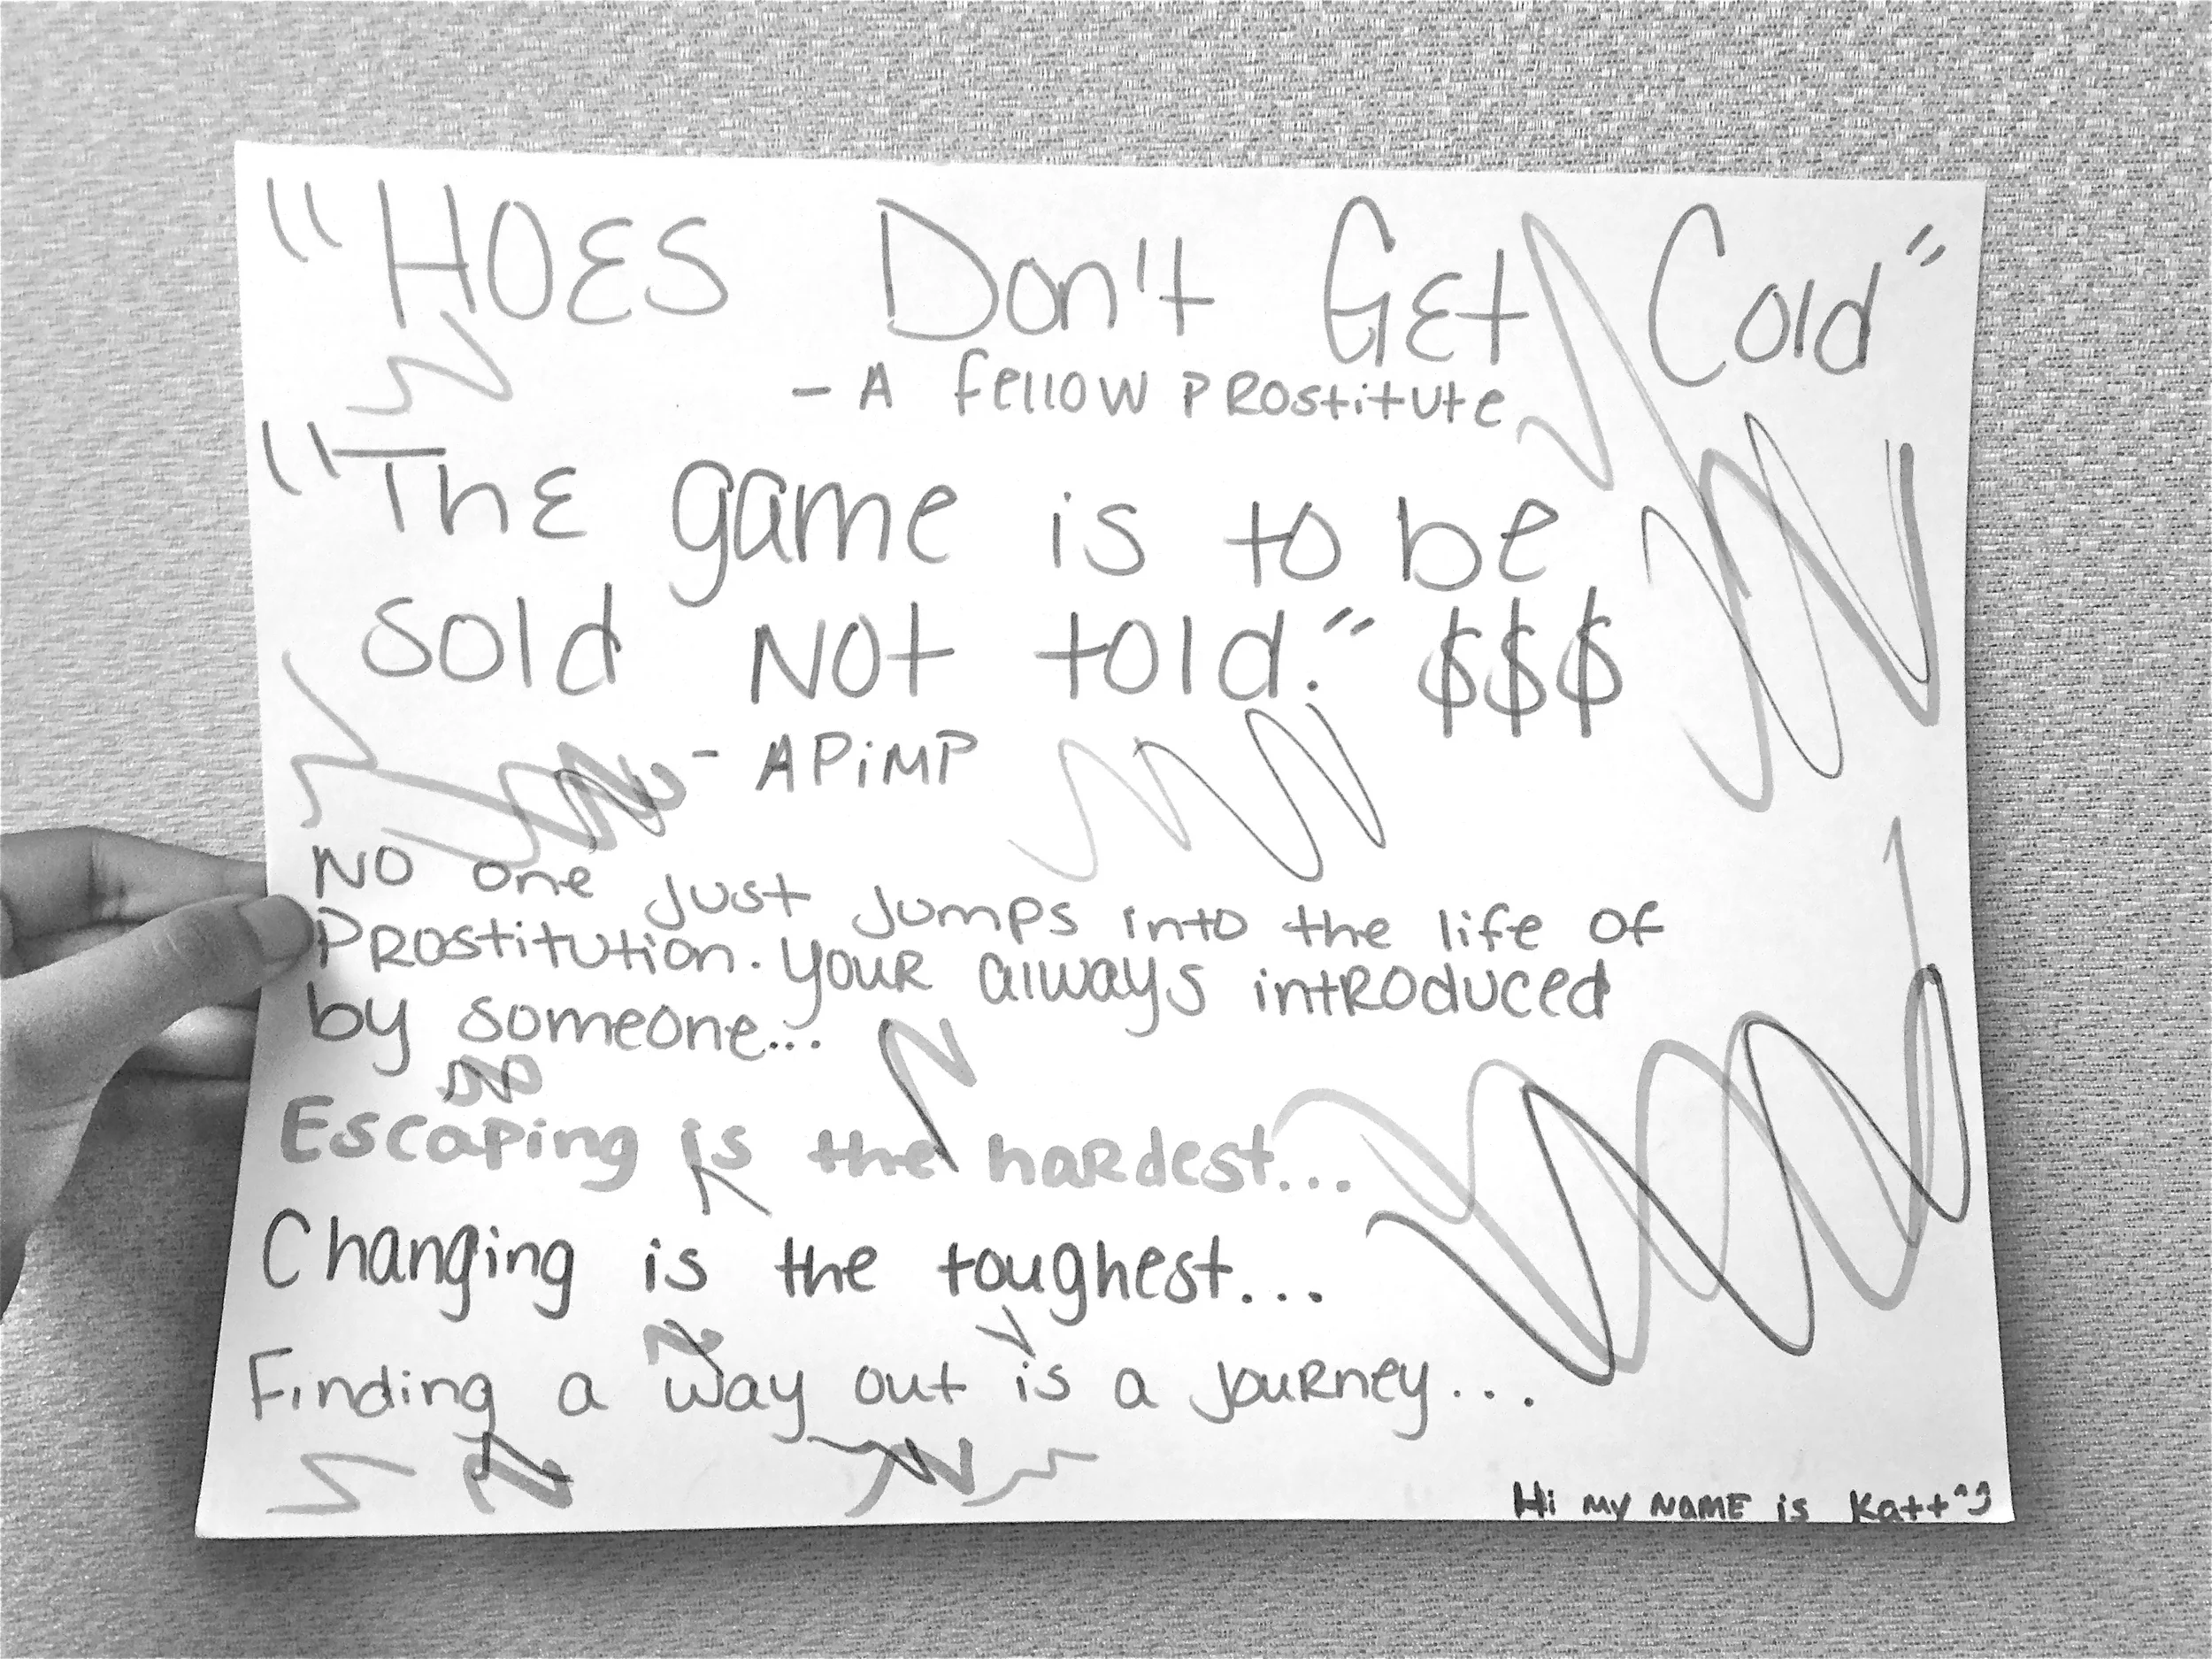 "HOES Don't GEt Cold"
- A fellow PROstitute
"ThE game is to be
sold Not told." $$$
- A PiMP
No one just jumps into the life of
PROstitution. YOUR always intRoduced
by someone...
Escaping is the haRdest...
Changing is the toughest...
Finding a way out is a jouRney...
Hi MY NAME is Katt^J